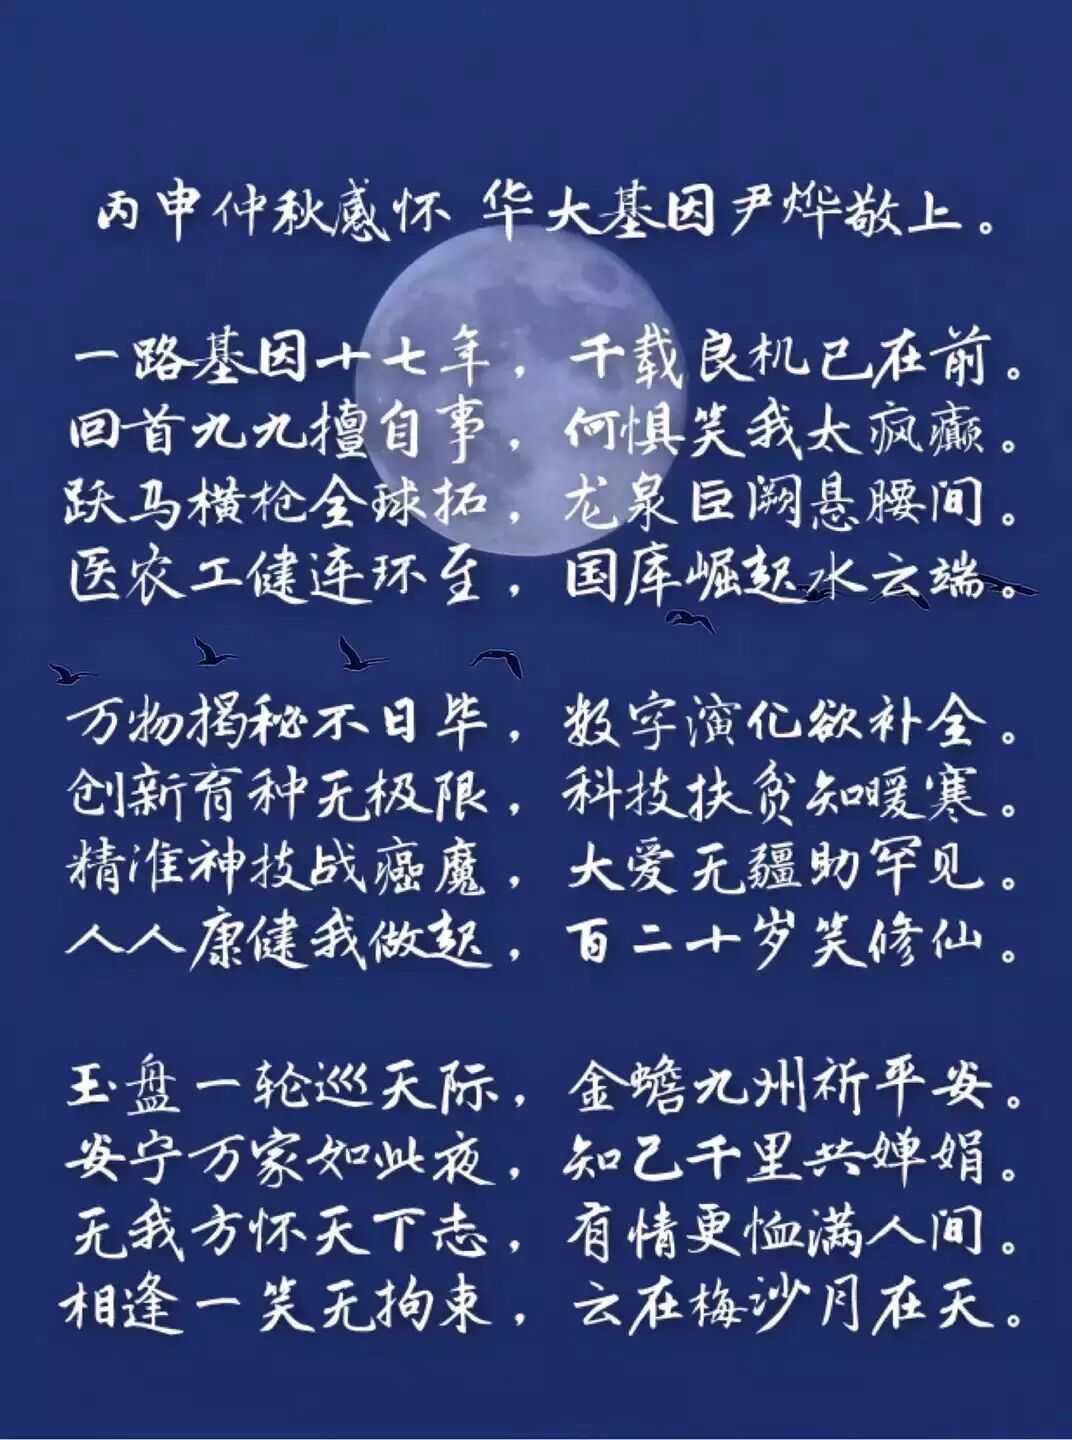 丙申仲秋感怀 华大基因尹烨敬上。
一路基因十七年，千载良机已在前。
回首九九擅自事，何惧笑我太疯癫。
跃马横枪全球拓，龙泉巨阙悬腰间。
医农工健连环至，国库崛起水云端。
万物揭秘不日毕，数字演化欲补全。
创新育种无极限，科技扶贫知暖寒。
精准神技战癌魔，大爱无疆助罕见。
人人康健我做起，百二十岁笑修仙。
玉盘一轮巡天际，金蟾九州祈平安。
安宁万家如此夜，知己千里共婵娟。
无我方怀天下志，有情更恤满人间。
相逢一笑无拘束，云在梅沙月在天。